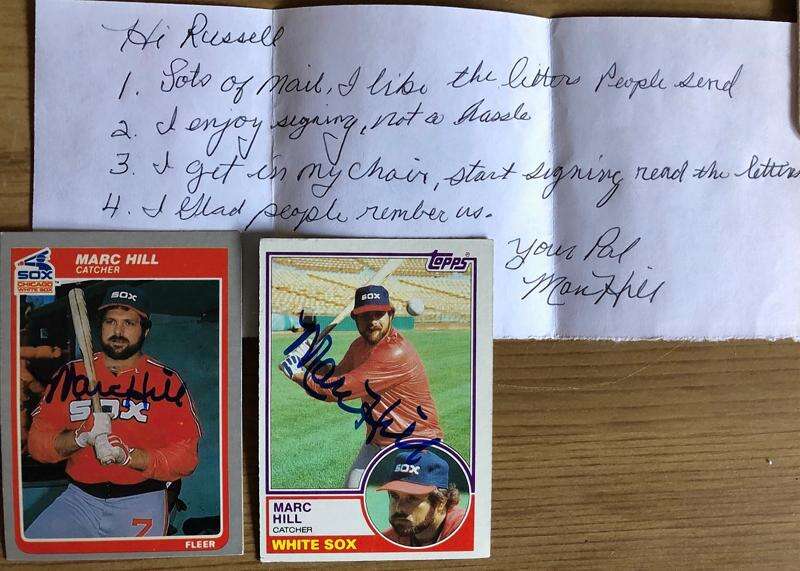 Hi Russell
1. Lots of mail, I like the letters People send
2. I enjoy signing, not a hassle
3. I get in my chair, start signing read the letters
4. I Glad people rember us.
Your Pal
Marc Hill
SOX
CHICAGO
WHITE SOX
MARC HILL
CATCHER
SOX
Marc Hill
SOX
7
FLEER
TOPPS
SOX
Marc Hill
SOX
MARC
HILL
CATCHER
WHITE SOX